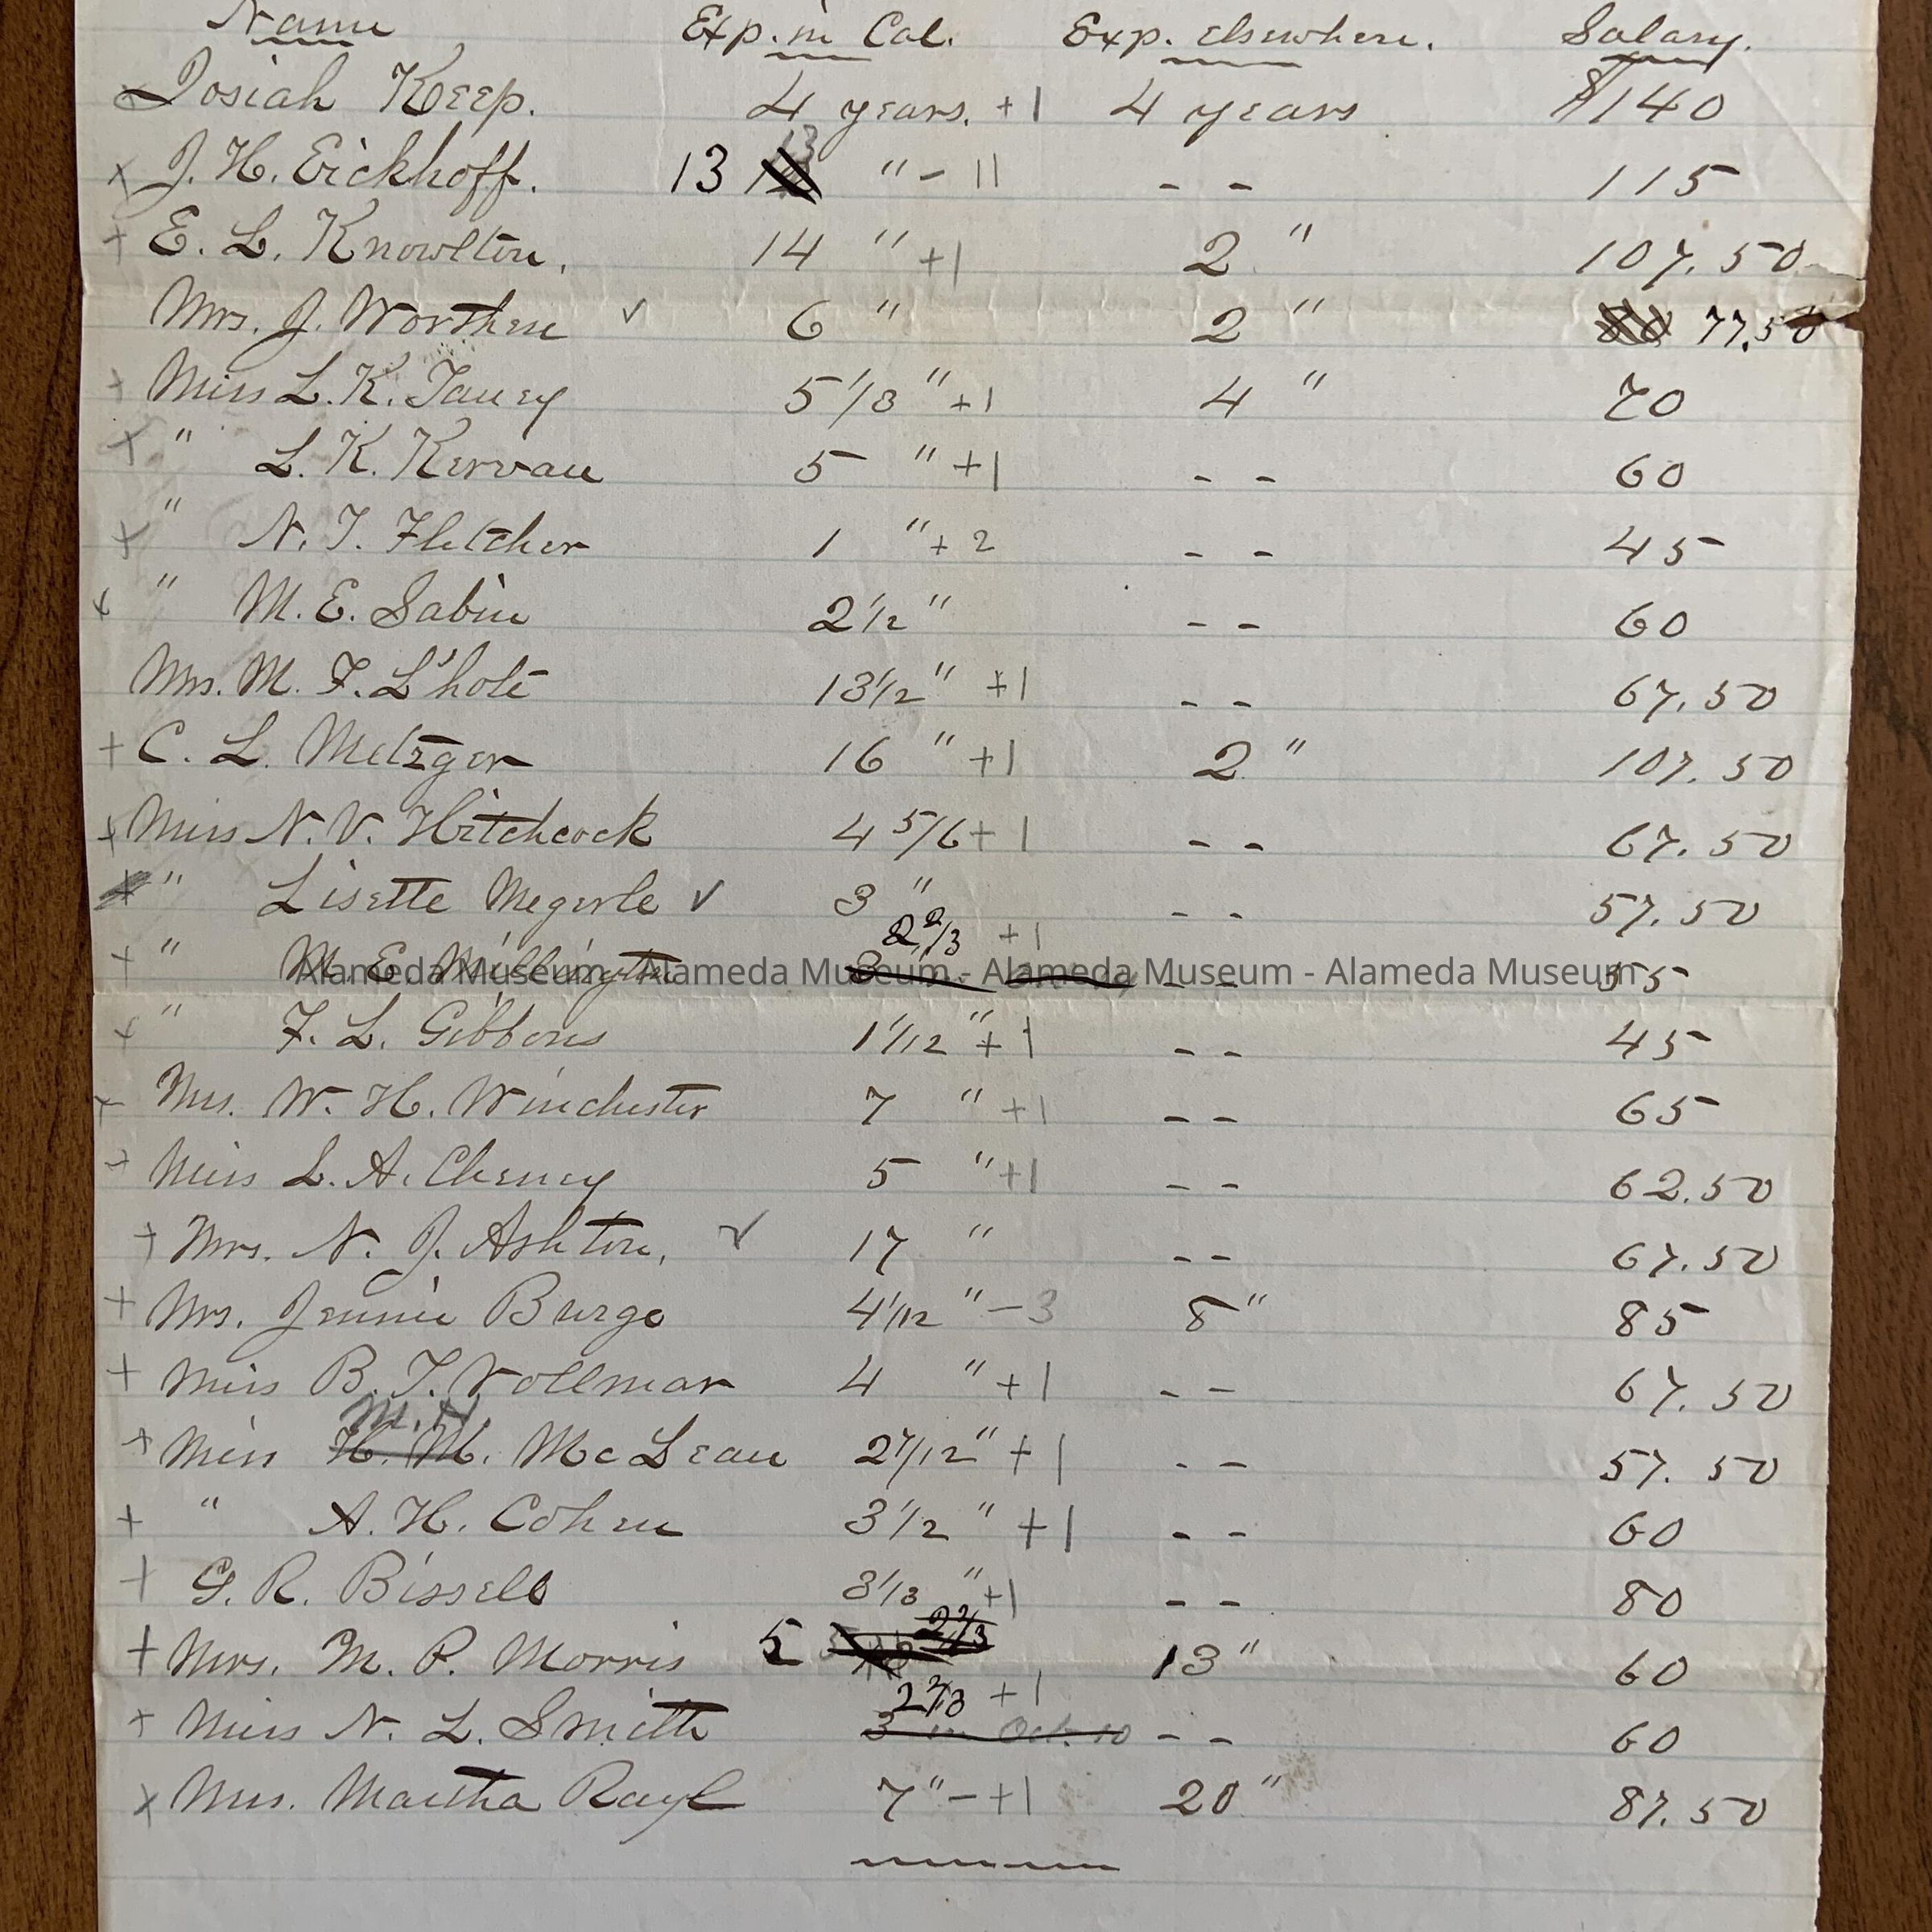 Name Exp. in Cal. Exp. elsewhere. Salary.
x Josiah Keep. 4 years. +1 4 years $140
x J. H. Eickhoff. 13 13 " - 11 - - 115
+ E. L. Knowlton. 14 " +1 2 " 107.50
Mrs. J. Worthen ✓ 6 " 2 " 80 77.50
+ Miss L. K. Taney 5 1/3 " +1 4 " 70
x " L. K. Kervan 5 " +1 - - 60
x " N. T. Fletcher 1 " + 2 - - 45
x " M. E. Sabin 2 1/2 " - - 60
Mrs. M. F. L'hote 13 1/2 " +1 - - 67.50
+ C. L. Metzger 16 " +1 2 " 107.50
x Miss N. V. Hitchcock 4 5/6 + 1 - - 67.50
x " Lisette Megerle ✓ 3 " - - 57.50
2 2/3 +1
+ " M. E. Millington 3 - - 55
Alameda Museum - Alameda Museum - Alameda Museum - Alameda Museum
x " F. L. Gibbons 1 1/12 " + 1 - - 45
Mrs. W. H. Winchester 7 " +1 - - 65
+ Miss L. A. Cheney 5 " +1 - - 62.50
+ Mrs. N. J. Ashton. ✓ 17 " - - 67.50
+ Mrs. Jennie Burge 4 1/12 " - 3 8 " 85
+ Miss B. T. Vollmar 4 " +1 - - 67.50
M. H.
+ Miss H. M. McLean 2 7/12 " + 1 - - 57.50
+ " A. H. Cohen 3 1/2 " +1 - - 60
+ G. R. Bissell 3 1/3 " +1 - - 80
2 2/3
+ Mrs. M. P. Morris 5 13 " 60
2 2/3 +1
+ Miss N. L. Smith 3 in Oct. 10 - - 60
x Mrs. Martha Rayl 7 " - +1 20 " 87.50